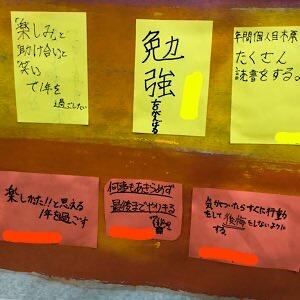 「楽しみ」と
助け合いと
「笑い
で1年を
過ごしたい
勉
強
をがんばる
年間個人目標
たくさん
読書をする。
楽しかった!!と思える
1年を過ごす
何事もあきらめず
最後までやりきる
気がついたらすぐに行動
をして後悔をしないように
する。